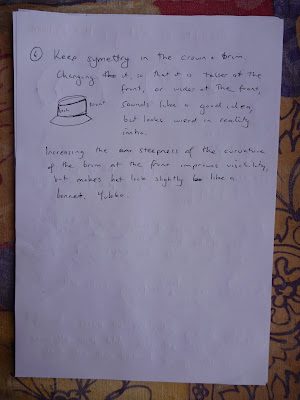 6 Keep symettry in the crown + brim.
Changing it, so that it is taller at the
front, or wider at the front,
back front sounds like a good idea,
but looks wierd in reality
imho.
Increasing the steepness of the curvature
of the brim at the front improves visibility,
but makes hat look slightly like a
bonnet. Yukko.